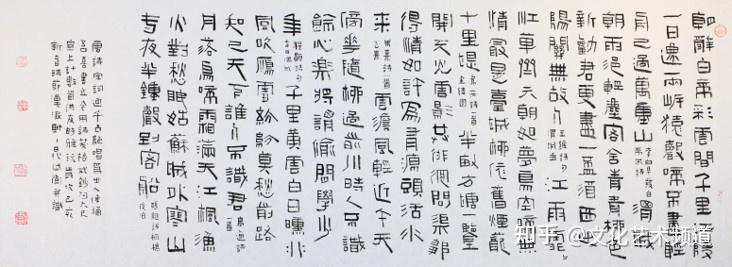 朝辭白帝彩雲間千里江陵
一日還兩岸猿聲啼不盡輕
舟已過萬重山 李白早發白帝城詩 渭城
朝雨浥輕塵客舍青青柳色
新勸君更盡一盃酒西出
陽關無故人 王維詩句渭城曲 江雨霏霏
江草齊六朝如夢鳥空啼無
情最是臺城柳依舊煙籠
十里堤 韋莊詩一首金陵圖 半畝方塘一鑒
開天光雲影共徘徊問渠那
得清如許為有源頭活水
來 朱熹詩 雲淡風輕近午天
傍花隨柳過前川時人不識
余心樂將謂偷閒學少
年 程顥詩句春日偶成 千里黃雲白日曛北
風吹雁雪紛紛莫愁前路
知己天下誰人不識君 高適詩一首
月落烏啼霜滿天江楓漁
火對愁眠姑蘇城外寒山
寺夜半鐘聲到客船 張繼詩楓橋夜泊
唐詩宋詞迺千古絕唱
知乎 @文化艺术频道